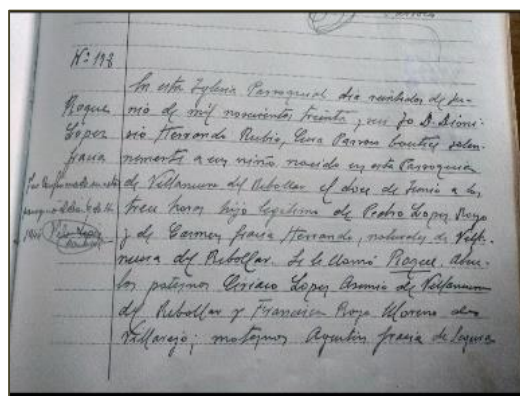 Nº 198
Roque
López
Gracia
En esta Iglesia Parroquial día veintidos de Ju-
nio de mil novecientos treinta, yo D. Dioni-
sio Herrando Rubio, Cura Párroco bauticé solem-
nemente a un niño nacido en esta Parroquia
de Villanueva del Rebollar el doce de Junio a las
trece horas hijo legítimo de Pedro López Royo
y de Carmen Gracia Herrando, naturales de Villa-
nueva del Rebollar. Se le llamó Roque. Abue-
los paternos Ciriaco López de Villanueva
del Rebollar y Francisca Royo Moreno de
Villarejo; maternos Agustín Gracia de